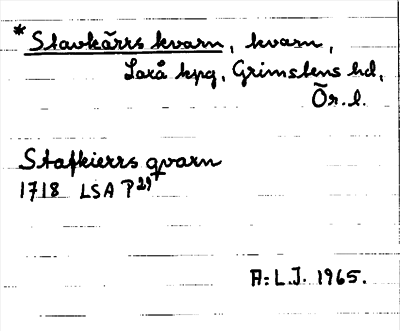 * Stavkärrs kvarn, kvarn,
Laxå kpg, Grimstens hd,
Ör. l.
Stafkierrs qvarn
1718 LSA P 29
A:L.J. 1965.